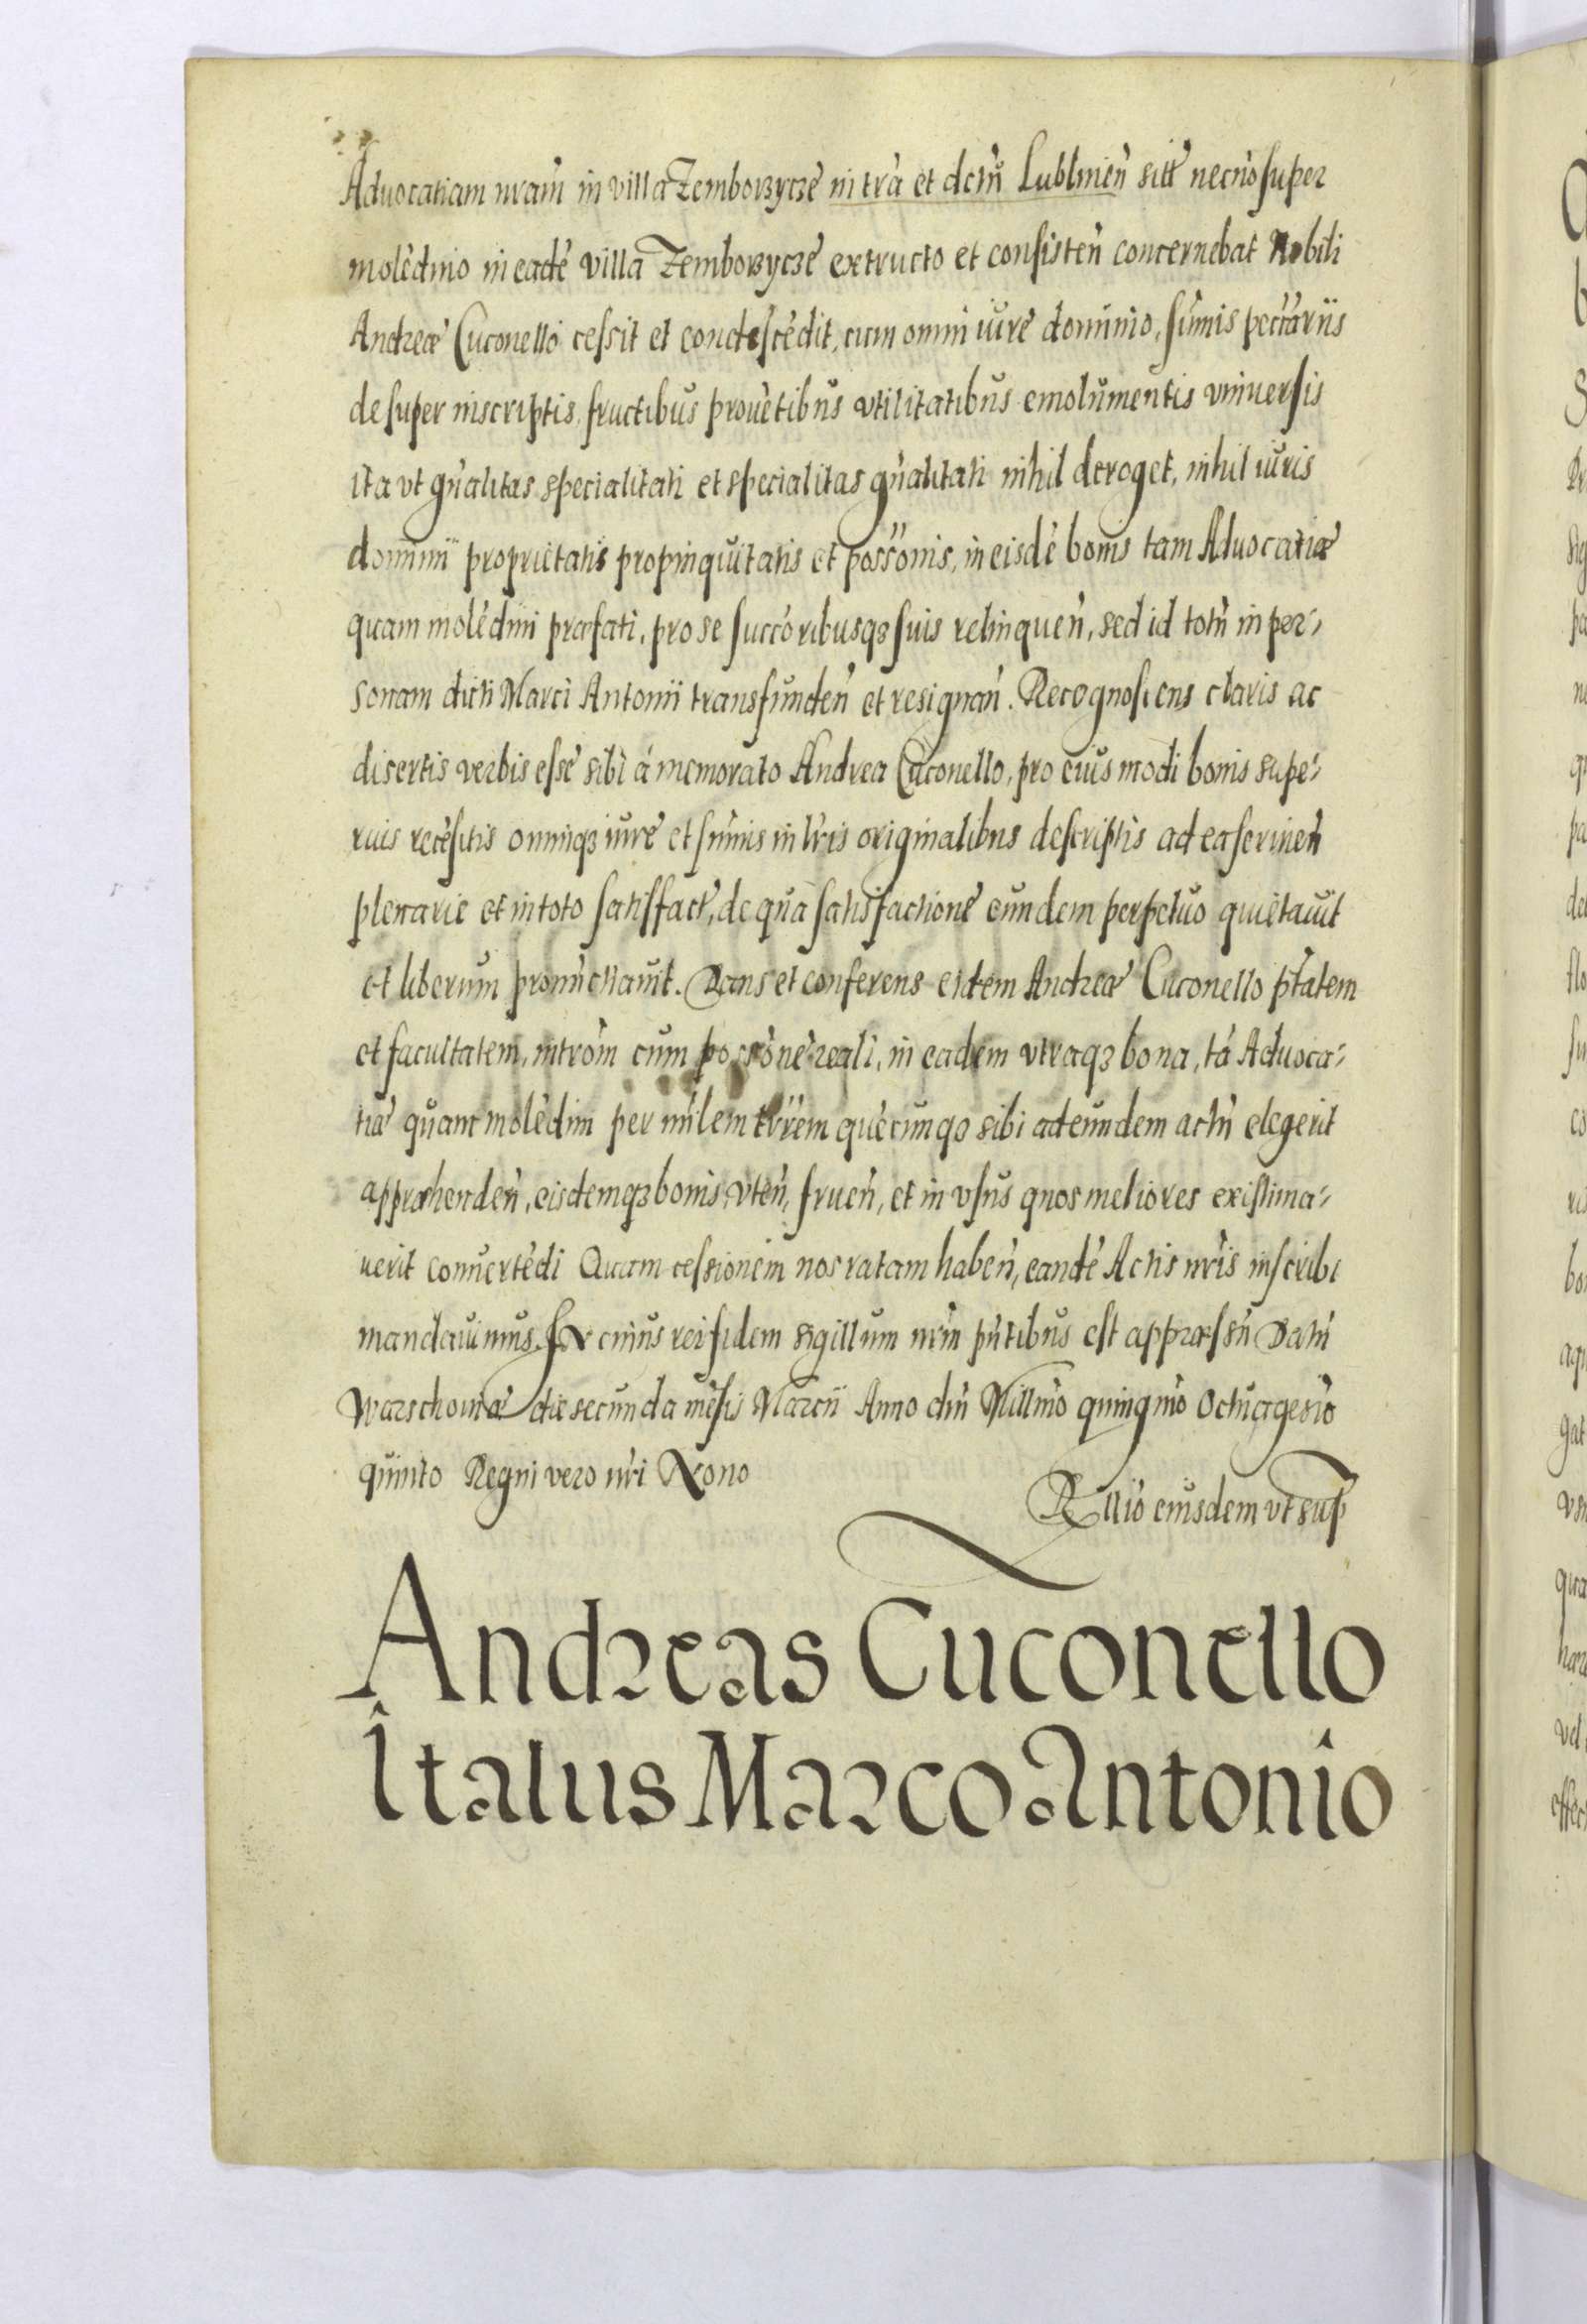 Advocatiam nram̃ in villa Zemborzyczẽ in trã et dctũ Lublineñ sitt̃ necnõ super
molẽdino in eadẽ villa Zemborzyczẽ extructo et consisteñ concernebat Nobili
Andreæ Cuconello cessit et condescẽdit, cum omni iure dominio, sum̃is pecc̃ariis
desuper inscriptis, fructibus provẽtibus vtilitatibus emolumentis vniversis
ita vt gñalitas specialitati et specialitas gñalitati nihil deroget, nihil iuris
dominii proprietatis propinquitatis et poss̃onis, in eisdẽ bonis tam Advocatiæ
quam molẽdini præfati, pro se succ̃oribusqȝ suis relinqueñ, sed id totũ in per-
sonam dicti Marci Antonii transfundeñ et resignañ. Recognoscens claris ac
disertis verbis esse sibi á memorato Andrea Cuconello, pro eiusmodi bonis supe-
rius recẽsitis omniqȝ iure et sum̃is in lr̃is originalibus descriptis ad ea servieñ
plenarie et in toto satisfact̃, de qua satisfactione eundem perpetuo quietavit
et liberum pronũctiavit. Dans et conferens eidem Andreæ Cuconello ptãtem
et facultatem, intrõm cum poss̃one reali, in eadem vtraqȝ bona, tã Advoca-
tiæ quam molẽdini per mĩlem trr̃em quẽcunqȝ sibi ad eundem actũ elegerit
appræhendeñ, eisdemqȝ bonis vteñ, frueñ, et in vsus quos meliores existima-
verit convertẽdi Quam cessionem nos ratam habeñ, eandẽ Actis nr̃is inscribi
mandavimus. In cuius rei fidem sigillum nrm̃ pñtibus est appræssũ Datũ
Warschoviæ die secunda mẽsis Marcii Anno dnĩ Millmõ quingmõ Octuagesiõ
quinto Regni vero nr̃i Nono
Rllĩo eiusdem vt sup̃
Andreas Cuconello
Italus Marco Antonio